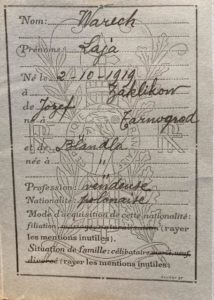 Nom: Warech
Prénoms: Laja
Né le 2-10-1919
à Zaklikow
de Jozef
à Tarnogrod
et de Blandla
née à "
Profession: vendeuse
Nationalité: polonaise
Mode d'acquisition de cette nationalité:
filiation, mariage, naturalisation (rayer
les mentions inutiles).
Situation de famille: célibataire, marié, veuf,
divorcé (rayer les mentions inutiles)